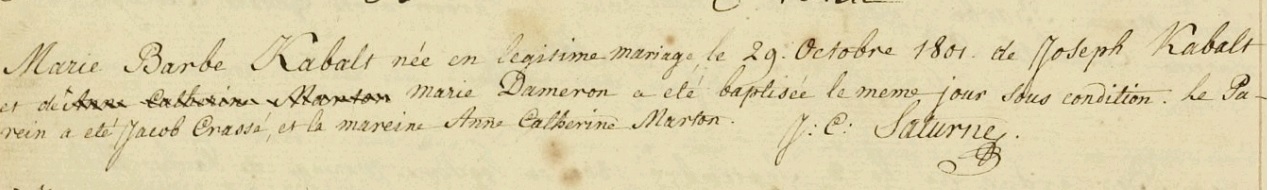 Marie Barbe Kabalt née en legitime mariage, le 29. Octobre 1801. de Joseph Kabalt
et de Anne Catherine Marton marie Dameron a eté baptisée le meme jour sous condition. Le Pa-
rein a eté Jacob Crassé, et la mareine Anne Catherine Marton. J: C: Saturne.